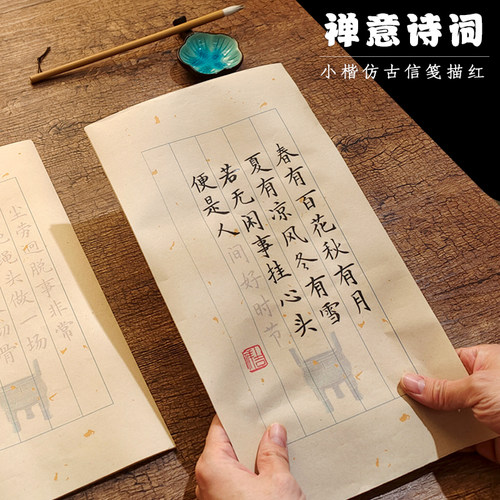 禅意诗词
小楷仿古信笺描红
春有百花秋有月
夏有凉风冬有雪
若无闲事挂心头
便是人间好时节
尘劳迥脱事非常
绳头做一场
彻骨